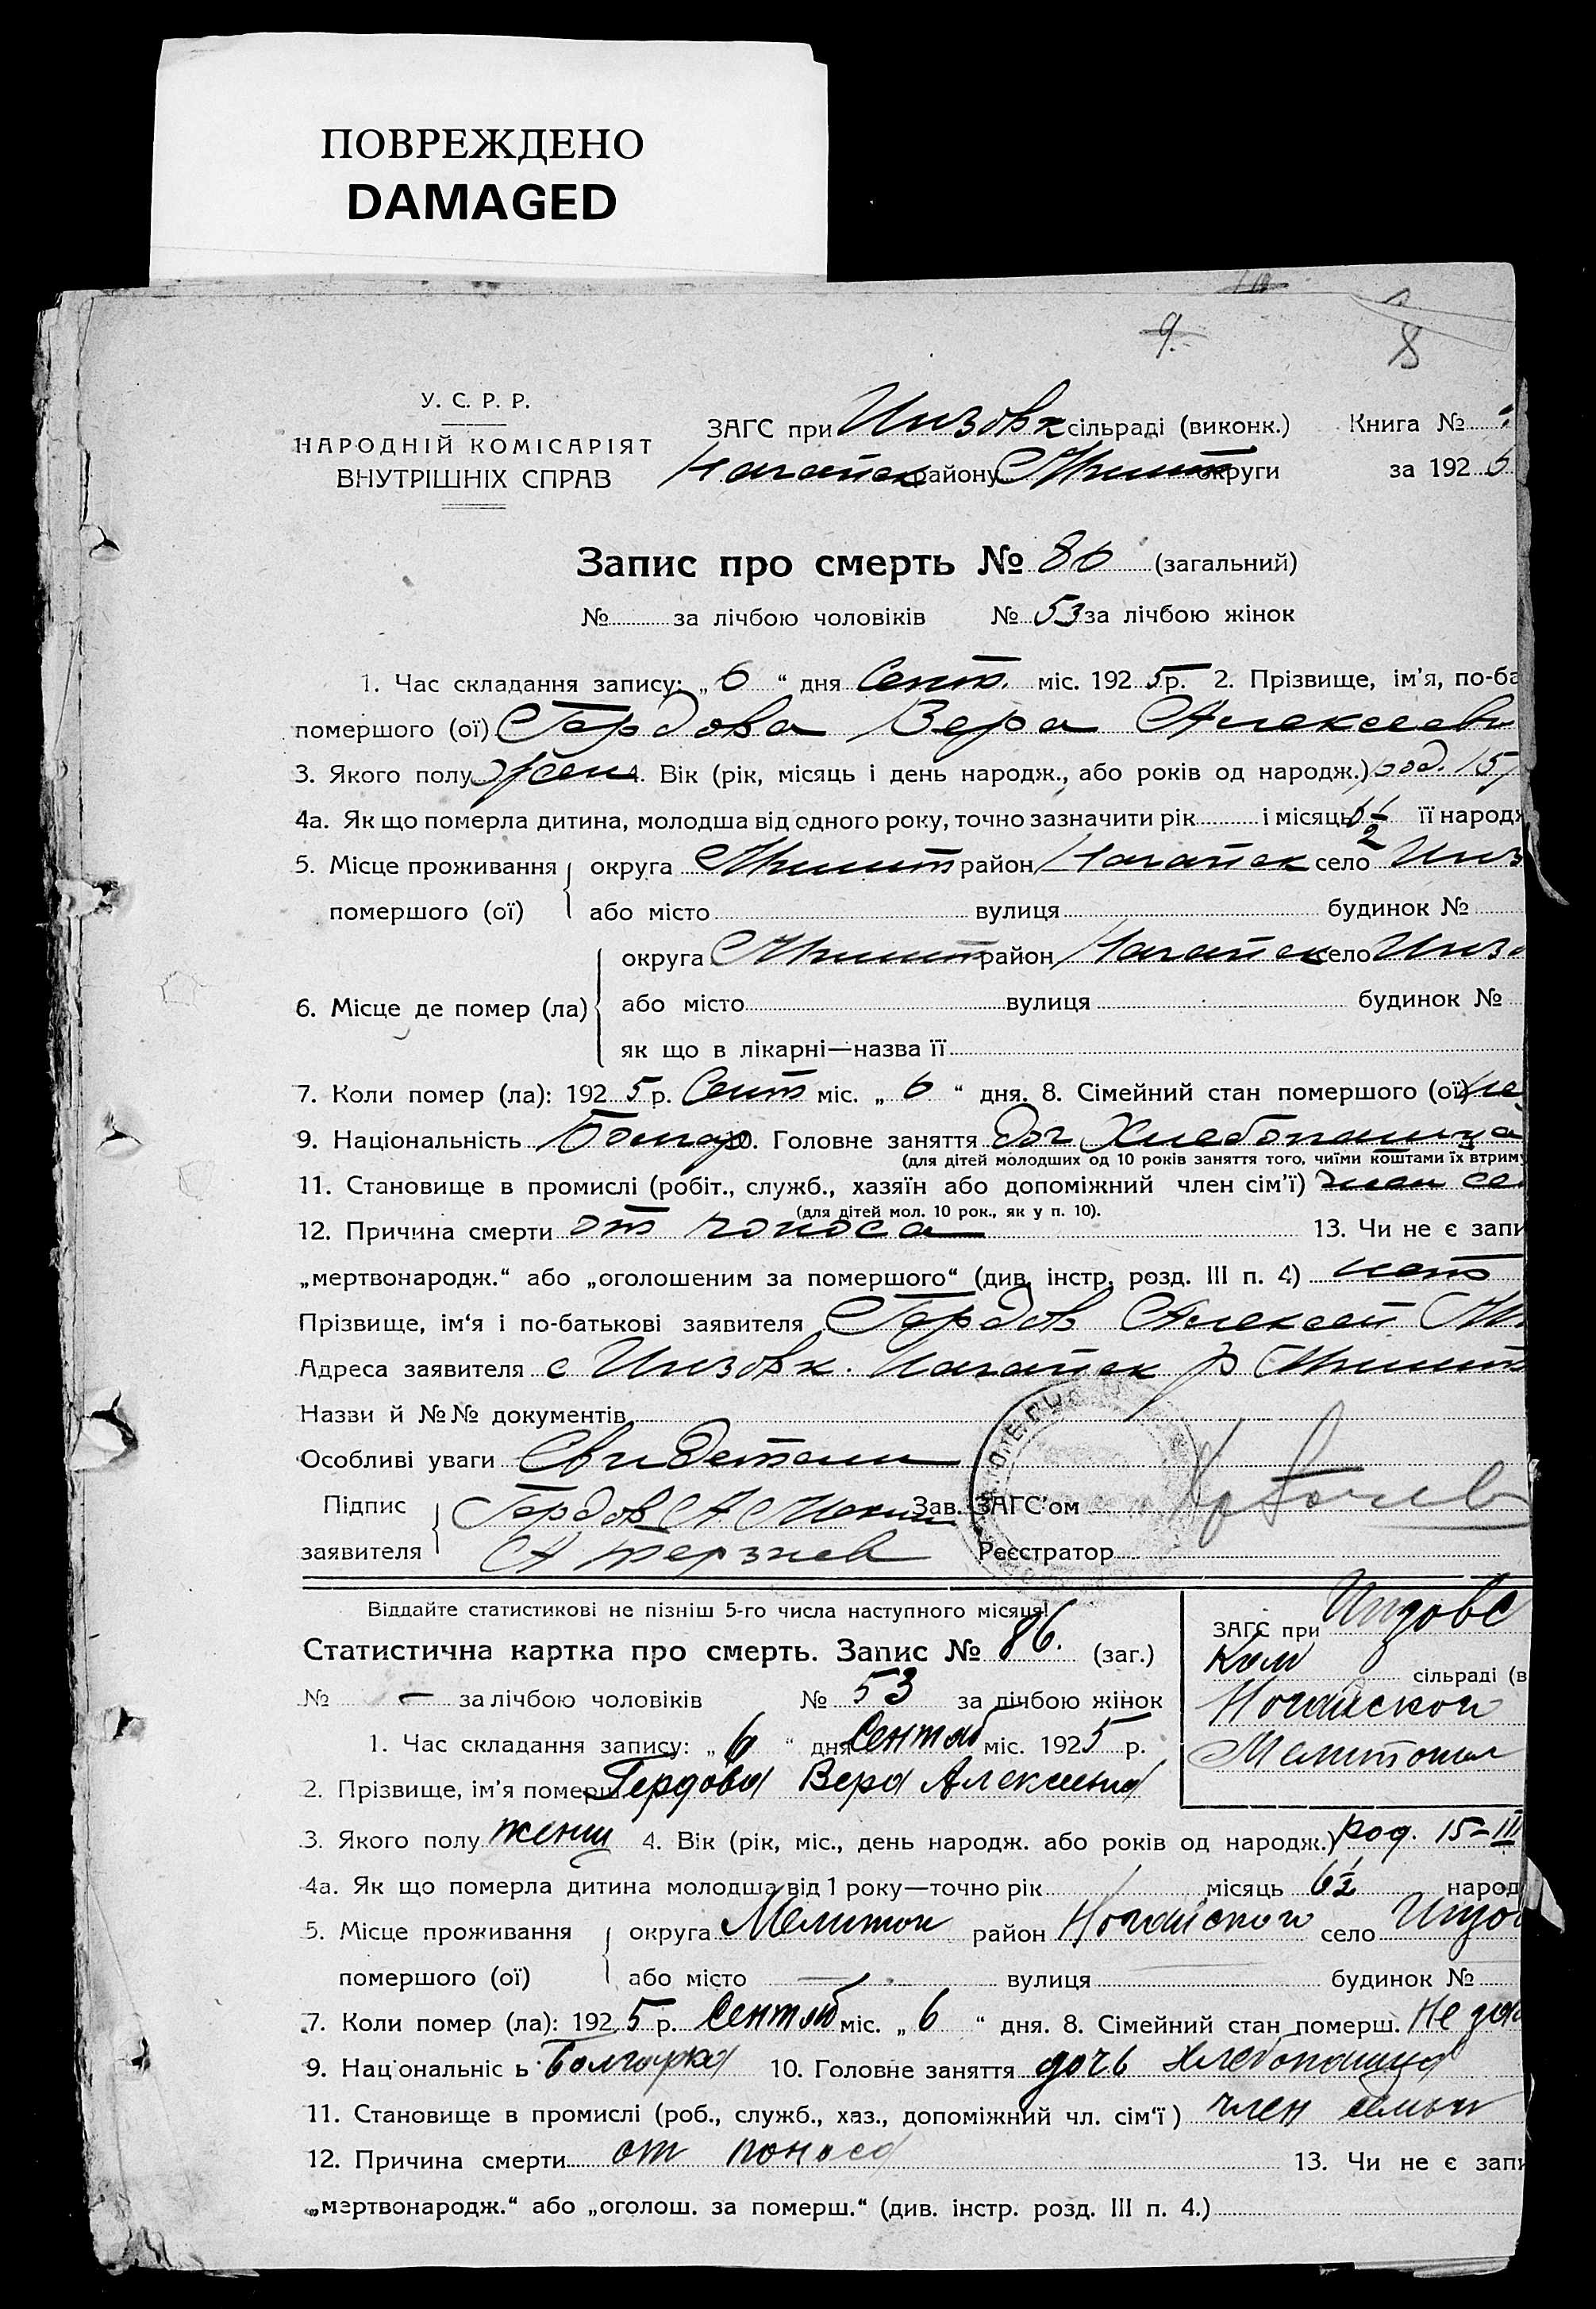 ПОВРЕЖДЕНО
DAMAGED
9.
8
У. С. Р. Р.
НАРОДНІЙ КОМІСАРІЯТ
ВНУТРІШНІХ СПРАВ
ЗАГС при Инзовк сільраді (виконк.) Книга №
Нагайск району Мелит округи за 192 5
Запис про смерть № 86 (загальний)
№ за лічбою чоловіків № 53 за лічбою жінок
1. Час складання запису: „ 6 “ дня Сент. міс. 192 5 р. 2. Прізвище, ім’я, по-ба
помершого (ої) Гердова Вера Алексеевн
3. Якого полу жен 4. Вік (рік, місяць і день народж., або років од народж.) род. 15/
4а. Як що померла дитина, молодша від одного року, точно зазначити рік і місяць 6 1/2 її народж
5. Місце проживання округа Мелит район Нагайск село Инз
помершого (ої) або місто вулиця будинок №
округа Мелит район Нагайск село Инзо
6. Місце де помер (ла) або місто вулиця будинок №
як що в лікарні—назва її
7. Коли помер (ла): 192 5 р. Сент міс. „ 6 “ дня. 8. Сімейний стан помершого (ої) не
9. Національність Болгар 10. Головне заняття доч хлебопашца
(для дітей молодших од 10 років заняття того, чиїми коштами їх втрим
11. Становище в промислі (робіт., служб., хазяїн або допоміжний член сім’ї) член се
(для дітей мол. 10 рок., як у п. 10).
12. Причина смерти от поноса 13. Чи не є запи
„мертвонародж.“ або „оголошеним за помершого“ (див. інстр. розд. III п. 4) нет
Прізвище, ім‘я і по-батькові заявителя Гердов Алексей М
Адреса заявителя с Инзовк. Нагайск р Мелит
Назви й №№ документів
Особливі уваги Свидетели
Підпис Гердов А Зав. ЗАГС’ом
заявителя А Терзиев Реєстратор
Віддайте статистикові не пізніш 5-го числа наступного місяця!
Статистична картка про смерть. Запис № 86. (заг.)
ЗАГС при Инзовс
Ком сільраді (в
Ногайского
Мелитопол
№ — за лічбою чоловіків № 53 за лічбою жінок
1. Час складання запису: „ 6 “ дня Сентяб міс. 192 5 р.
2. Прізвище, ім’я померш Гердова Вера Алексеевна
3. Якого полу женщ 4. Вік (рік, міс., день народж. або років од народж.) род. 15-III
4а. Як що померла дитина молодша від 1 року—точно рік місяць 6 1/2 народ
5. Місце проживання округа Мелитоп район Ногайского село Инзов
помершого (ої) або місто — вулиця будинок №
7. Коли помер (ла): 192 5 р. Сентяб міс. „ 6 “ дня. 8. Сімейний стан померш. Не
9. Національніс ь Болгарка 10. Головне заняття дочь хлебопашца
11. Становище в промислі (роб., служб., хаз., допоміжний чл. сім‘ї) член семьи
12. Причина смерти от поноса 13. Чи не є запи
„мертвонародж.“ або „оголош. за померш.“ (див. інстр. розд. III п. 4.)